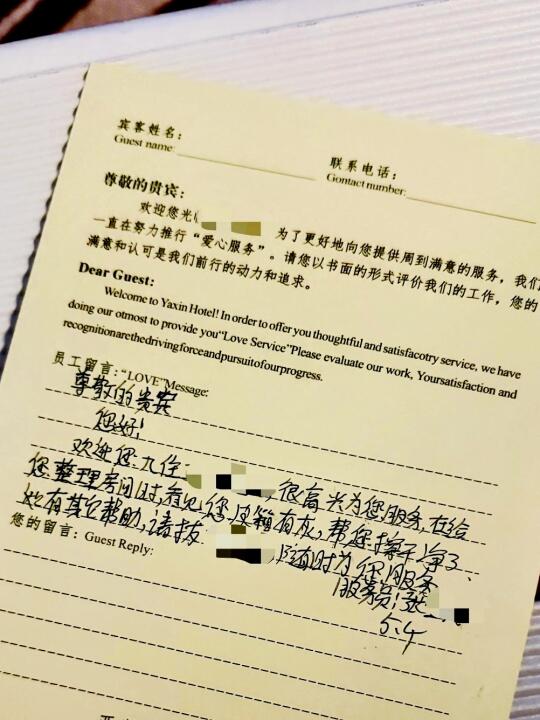 宾客姓名：
Guest name:
联系电话：
Gontact number:
尊敬的贵宾：
欢迎您光 为了更好地向您提供周到满意的服务，我们
一直在努力推行“爱心服务”。请您以书面的形式评价我们的工作，您的
满意和认可是我们前行的动力和追求。
Dear Guest:
Welcome to Yaxin Hotel! In order to offer you thoughtful and satisfacotry service, we have
doing our otmost to provide you“Love Service”Please evaluate our work, Yoursatisfaction and
recognitionarethedrivingforceandpursuitofourprogress.
员工留言：“LOVE”Message:
尊敬的贵宾
您好！
欢迎您入住 很高兴为您服务，在给
您整理房间时，看见您皮箱有灰，帮您擦干净了、
如有其它帮助，请拔 ，随时为您服务
您的留言：Guest Reply:
服务员：张
5.4